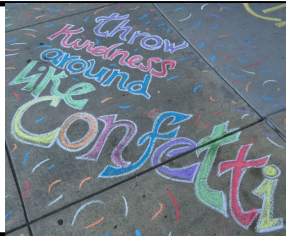 throw
Kindness
around
like
Confetti